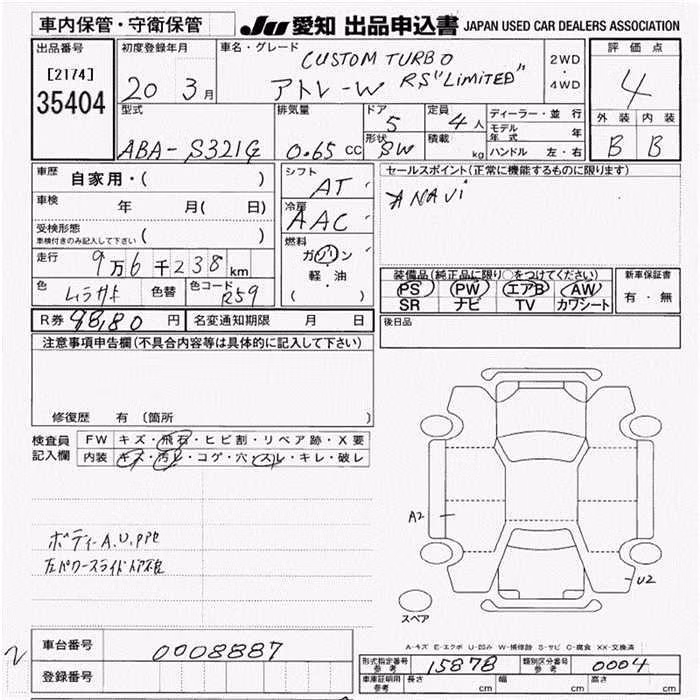 車内保管・守衛保管
JU 愛知 出品申込書 JAPAN USED CAR DEALERS ASSOCIATION
出品番号
[2174]
35404
初度登録年月
20 3月
車名・グレード
CUSTOM TURBO
アトレーW RS"LIMITED"
2WD
・
4WD
評価点
4
外装 内装
B B
型式
ABA-S321G
排気量
0.65 CC
ドア
5
形状
SW
定員
4人
積載
kg
ディーラー・並行
モデル年式 年
ハンドル 左・右
車歴
自家用・( )
車検 年 月( 日)
受検形態
車検付きのみ記入して下さい ( )
走行
9万6千238km
色 ムラサキ 色替 色コード R59
シフト
AT
冷房
AAC
燃料
ガソリン
・
軽・油
( )
セールスポイント(正常に機能するものに限ります)
NAVi
装備品(純正品に限り○をつけてください)
PS PW エアB AW
SR ナビ TV カワシート
新車保証書
有・無
後日品
R券 98,80 円 名変通知期限 月 日
注意事項申告欄(不具合内容等は具体的に記入して下さい)
修復歴 有 (箇所 )
検査員
記入欄
FW キズ・飛石・ヒビ割・リペア跡・X要
内装 キズ・汚レ・コゲ・穴・スレ・キレ・破レ
ボディーA.U.
左パワースライドドア不良
A2
U2
スペア
A-キズ E-エクボ U-凹み W-補修跡 S-サビ C-腐食 XX-交換済
車台番号 0008887
登録番号
形式指定番号
参考
15878
類別区分番号
参考
0004
車庫証明用
参考
長さ cm 幅 cm 高さ cm